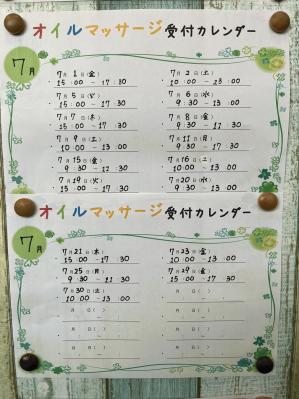 オイルマッサージ受付カレンダー
7月
7月1日(金) 7月2日(土)
15:00~17:30 10:00~13:00
7月5日(火) 7月6日(水)
15:00~17:30 9:30~13:00
7月7日(木) 7月8日(金)
15:00~17:30 9:30~11:30
7月9日(土) 7月11日(月)
10:00~13:00 9:30~11:30
7月15日(金) 7月16日(土)
9:30~ 10:00~13:00
7月19日(火) 7月20日(水)
15:00~17:30 9:30~13:00
オイルマッサージ受付カレンダー
7月
7月21日(木) 7月23日
15:00~17:30 10:00~13:00
7月25日(月) 7月29日(金)
9:30~11:30 15:00~17:30
7月30日(土) 月 日( )
10:00~13:00 ~
月 日( ) 月 日( )
~ ~
月 日( ) 月 日( )
~ ~
月 日( ) 月 日( )
~ ~